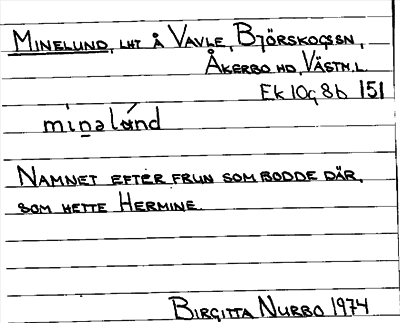 MINELUND, LHT Å VAVLE, BJÖRSKOGSSN,
ÅKERBO HD, VÄSTM.L.
Ek 10g 8b 151
NAMNET EFTER FRUN SOM BODDE DÄR,
SOM HETTE HERMINE.
BIRGITTA NURBO 1974